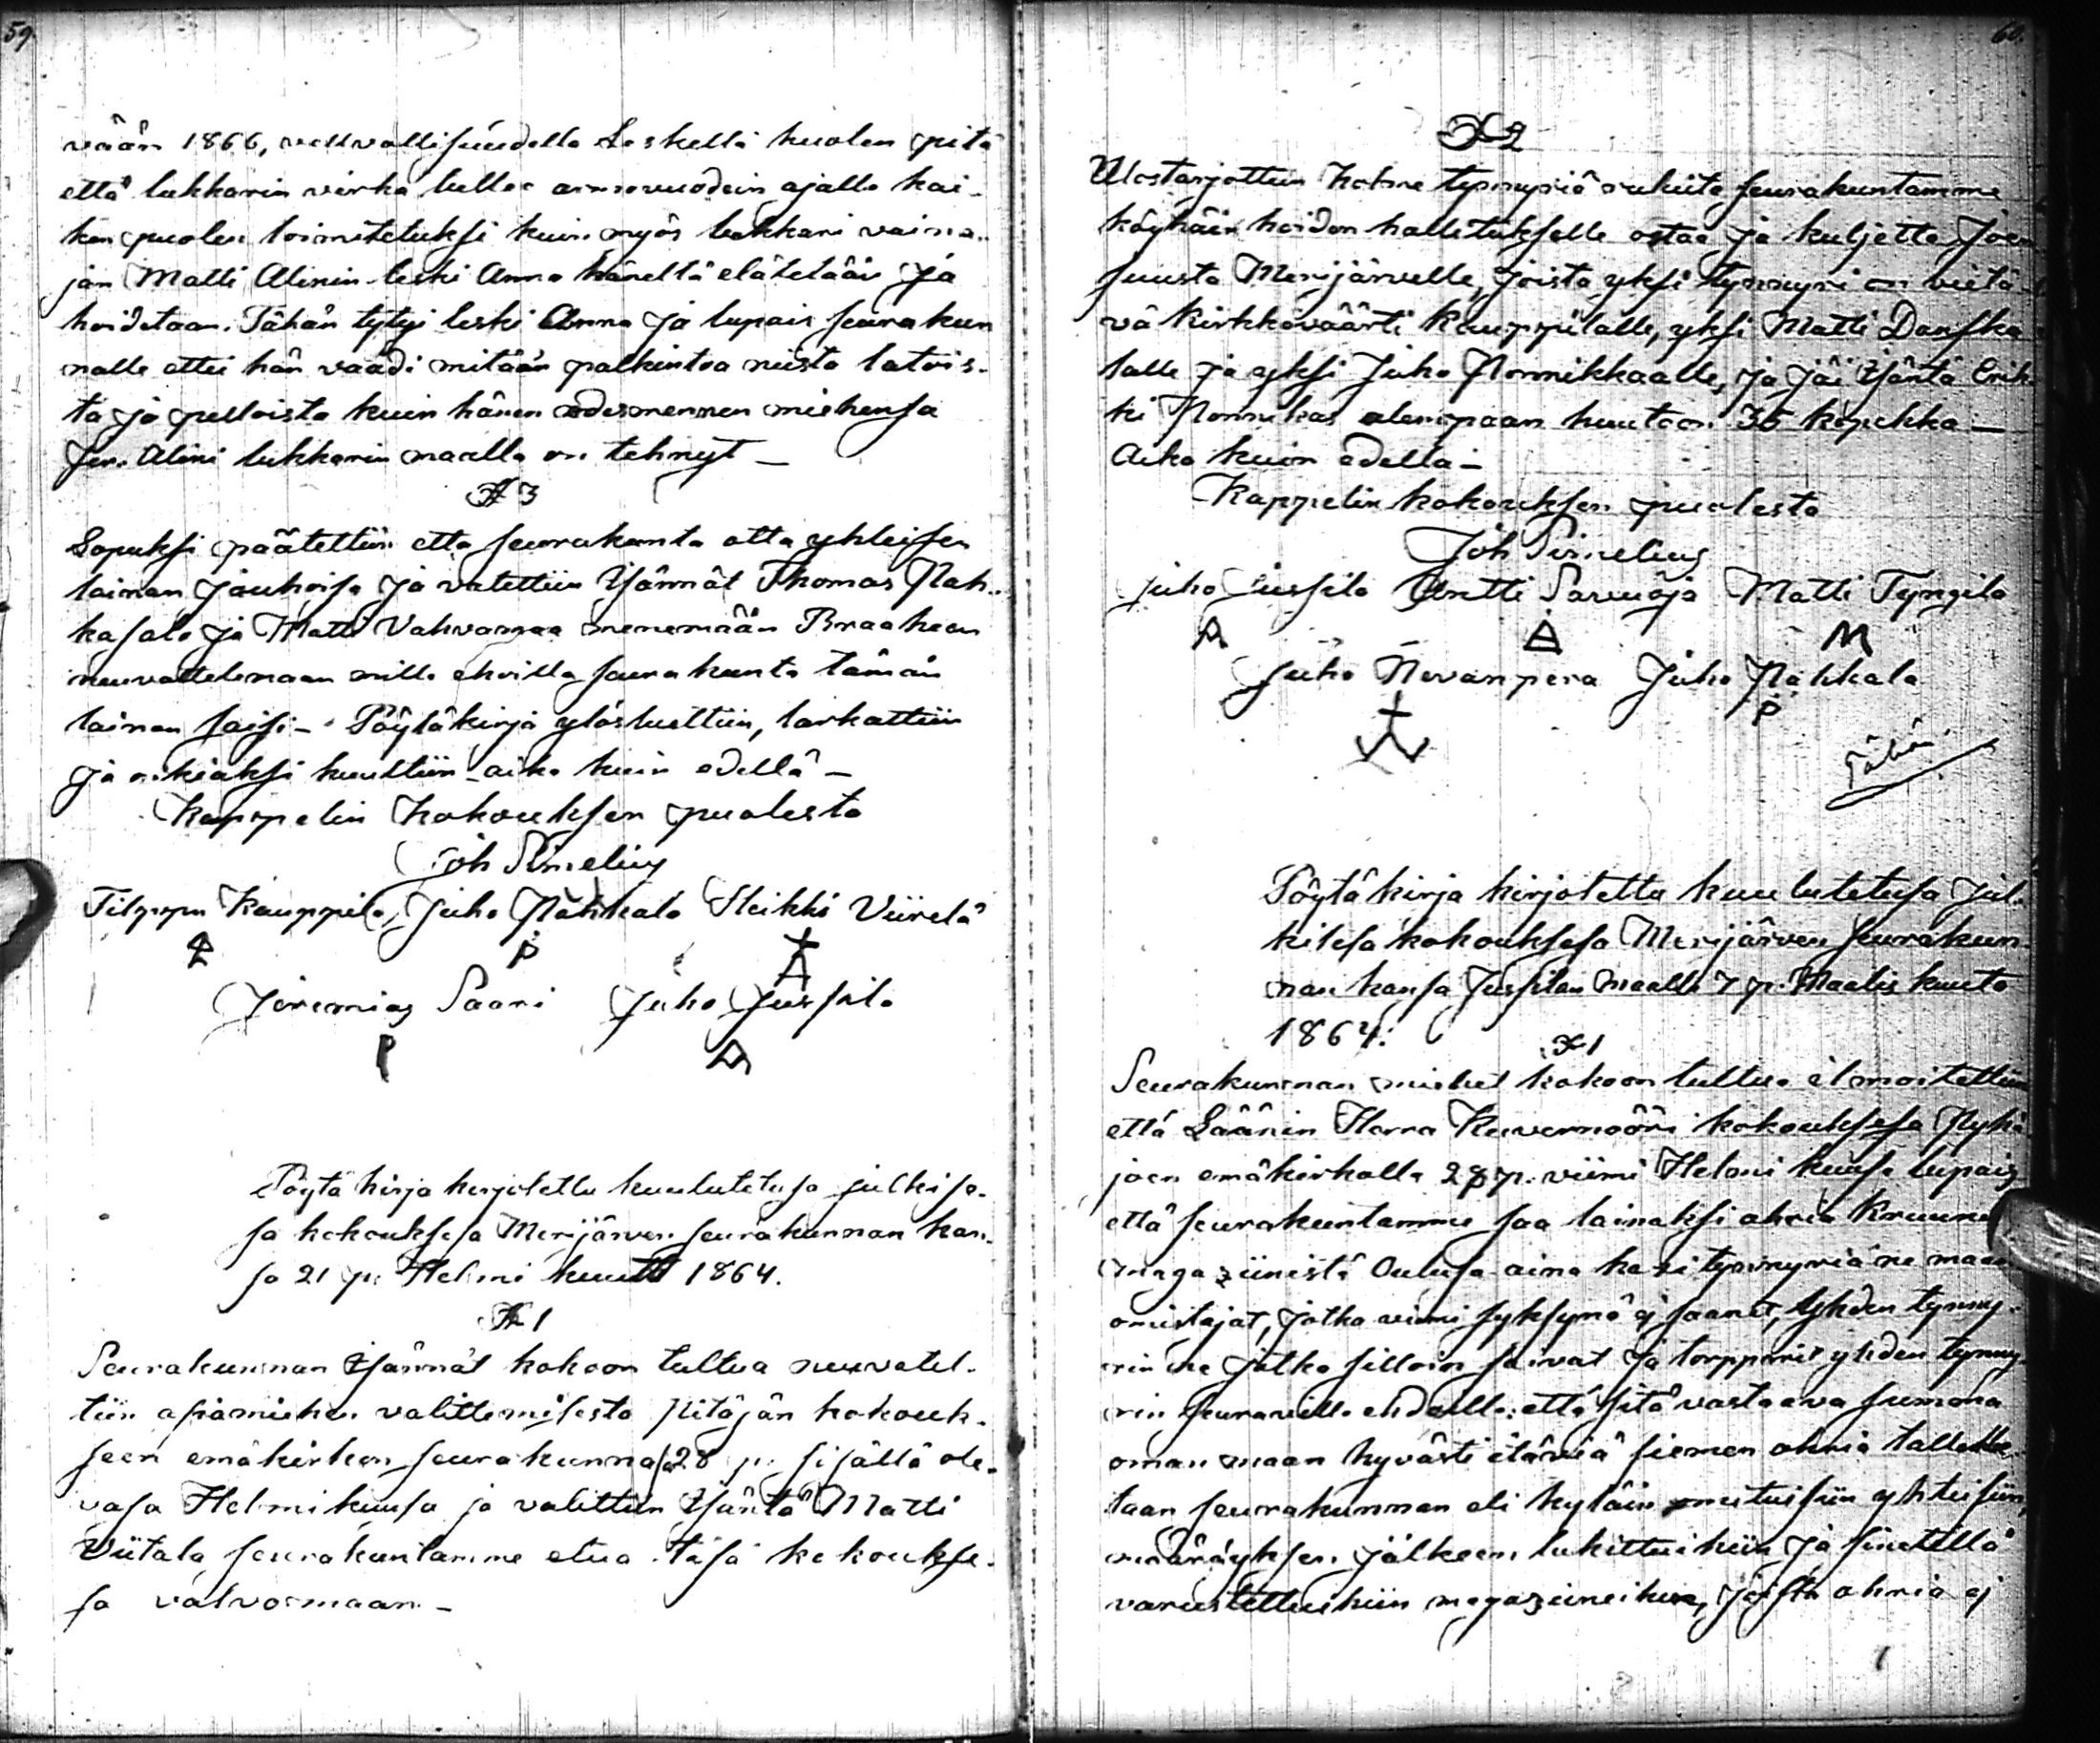 59.
vään 1866, velvollisuudella Leskellä kuolen pitä
että lukkarin virka tullee armovuodein ajalla kai-
ken puolen toimitetuksi kuin myös lukkari vaina-
jan Matti Alinin leski Anna häneltä elätetään ja
hoidetaan. Tähän tytyi leski Anna ja lupais seurakun
nalle ettei hän vaadi mitään palkintoa niistä latois-
ta ja pelloista kuin hänen edesmennen miehensa
Jer. Alini lukkarin maalla on tehnyt —
§ 3
Lopuksi päätettiin että seurakunta otta yhteisen
lainan jauhoisa ja valittiin Isännät Thomas Nah-
kasalo ja Matti Vahvamaa menemään Braahean
neuvottelemaan millä ehoilla seurakunta tämän
lainan saisi — Pöytäkirja ylösluettiin, tarkattiin
ja oikiaksi kuultiin aika kuin edellä —
Kappelin Kokouksen puolesta
Joh Simelius
Filppu Kauppila, Juho Näkkälä Heikki Viirelä
Jeremias Saari Juho Jussila
Pöytäkirja kirjotettu kuulutetusa julkise-
sa kokouksesa Merijärven seurakunnan kan-
sa 21 p. Helmi kuuta 1864.
§ 1
Seurakunnan Isännät kokoon tultua neuvotel-
tiin asiamiehen valittemisesta Pitäjän kokouk-
seen emäkirkon seurakunnasa 28 p. sisällä ole-
vasa Helmikuusa ja valittiin Isäntä Matti
Viitala seurakuntamme etua täsä kokoukse-
sa valvomaan —
60.
§ 2
Ulostarjottiin kolme tynnyriä rukiita seurakuntamme
köyhäin hoidon halletukselle ostaa ja kuljetta Joen
suusta Merijärvelle, joista yksi tynnyri on vietä-
vä kirkkoväärti Kauppilalle, yksi Matti Danska
lalle ja yksi Juho Nornikkaalle, ja jäi Isäntä Erik-
ki Nornikas alempaan huutoon 35 kopekka —
Aika kuin edellä —
Kappelin kokouksen puolesta
Joh Simelius
Juho Jussila Antti Sarvioja Matti Tyngilä
Juho Nevanpera Juho Näkkälä
Pöytäkirja kirjotettu kuulutetusa jul-
kisesa kokouksesa Merijärven seurakun-
nan kansa Jussilan maalla 7 p. Maalis kuuta
1864.
§ 1
Seurakunnan miehet kokoon tultua ilmoitettiin
että Läänin Herra Kuvernööri kokouksesa Pyhä
joen emäkirkolla 28 p. viimi Helmi kuusa lupais
että seurakuntamme saa lainaksi ohria Kruunun
magaziinistä Oulusa aina kaxi tynnyriä ne maan
omistajat, jotka viimi syksynä ej saanet, Yhden tynny-
rin ne jotka silloin saivat ja torpparit yhden tynny-
rin seuravilla ehdoilla: että sitä vastaava summa
oman maan hyvästi itäviä siemen ohria talletta-
taan seurakunnan eli kyläin omituisiin yhteisiin,
määräyksen jälkeen lukittuihin ja sinetillä
varustettuihin magaziineihin, joista ohria ej